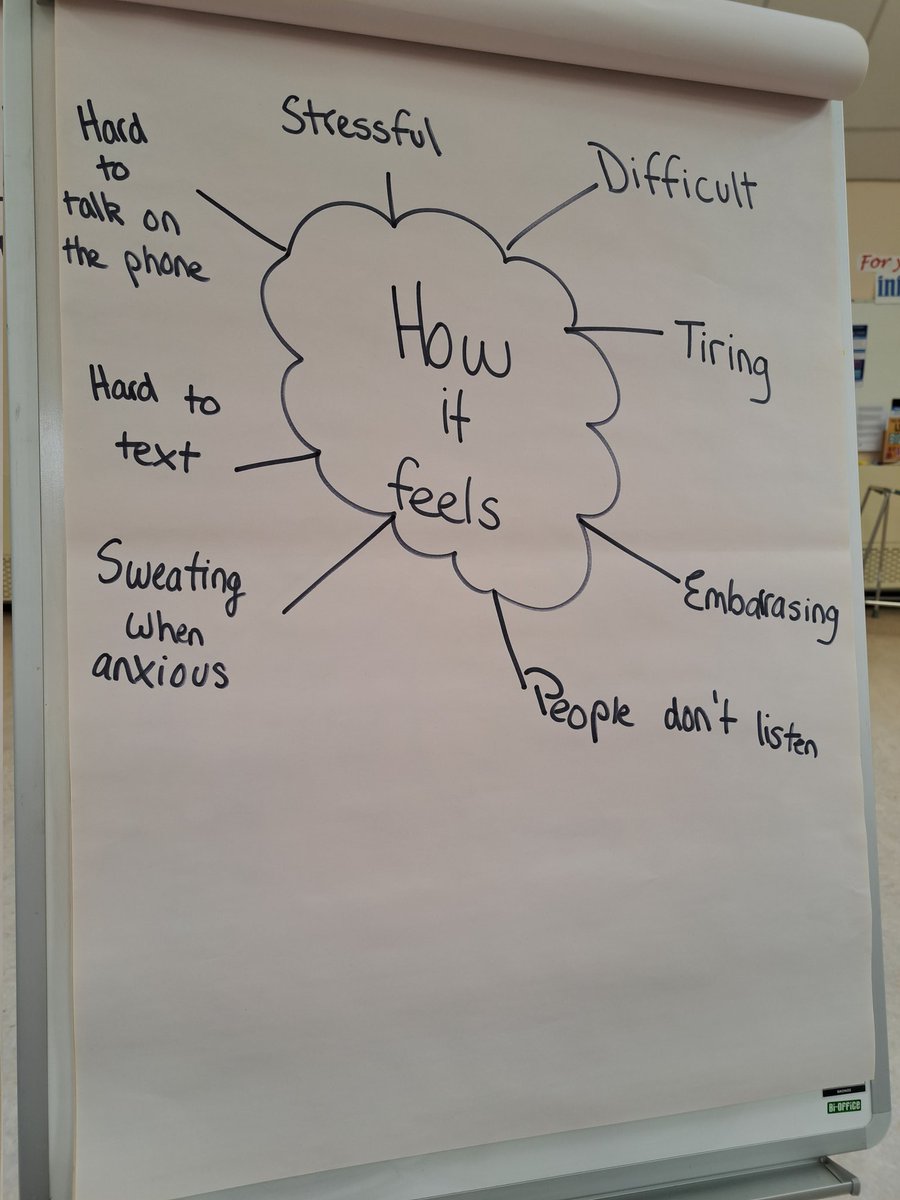 Stressful
Hard
to
talk on
the phone
Difficult
How
it
feels
Tiring
Hard to
text
Sweating
when
anxious
Embarrasing
People don't listen
For
Bi-OFFICE